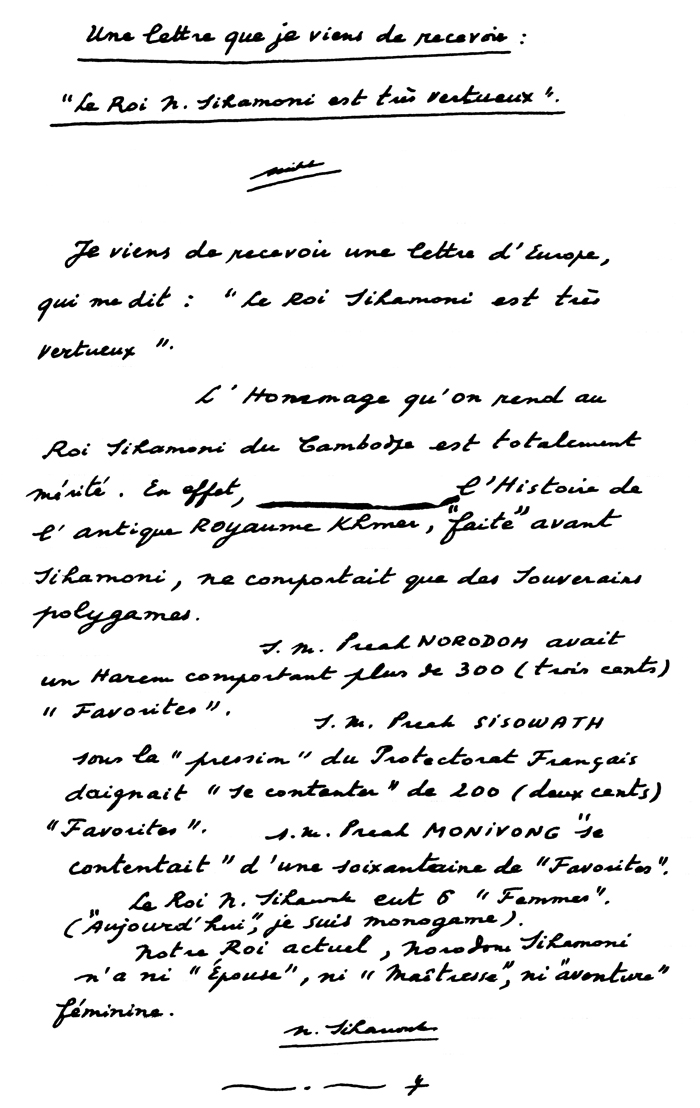 Une lettre que je viens de recevoir :
"Le Roi N. Sihamoni est très vertueux".
Je viens de recevoir une lettre d'Europe,
qui me dit : "Le Roi Sihamoni est très
vertueux".
L'Hommage qu'on rend au
Roi Sihamoni du Cambodge est totalement
mérité. En effet, l'Histoire de
l'antique Royaume Khmer, "faite" avant
Sihamoni, ne comportait que des Souverains
polygames.
S.M. Preah NORODOM avait
un Harem comportant plus de 300 (trois cents)
"Favorites".
S.M. Preah SISOWATH
sous la "pression" du Protectorat Français
daignait "se contenter" de 200 (deux cents)
"Favorites". S.M. Preah MONIVONG "se
contentait" d'une soixantaine de "Favorites".
Le Roi N. Sihanouk eut 6 "Femmes".
("Aujourd'hui", je suis monogame).
Notre Roi actuel, Norodom Sihamoni
n'a ni "Épouse", ni "Maîtresse", ni "aventure"
féminine.
N. Sihanouk